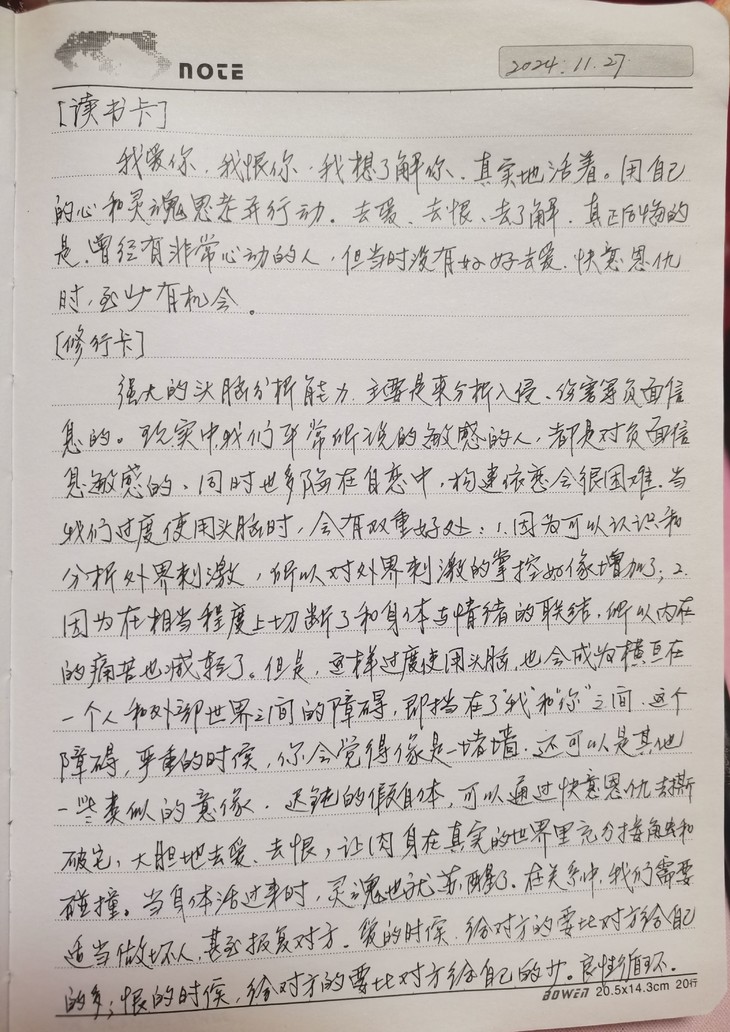 NOTE
2024.11.27
[读书卡]
我爱你、我恨你、我想了解你、真实地活着。用自己
的心和灵魂思考并行动。去爱、去恨、去了解、真正后悔的
是、曾经有非常心动的人,但当时没有好好去爱、快意恩仇
时,至少有机会。
[修行卡]
强大的头脑分析能力、主要是来分析入侵、伤害等负面信
息的。现实中我们平常所说的敏感的人,都是对负面信
息敏感的、同时也多陷在自恋中,构建依恋会很困难、当
我们过度使用头脑时,会有双重好处:1.因为可以认识和
分析外界刺激,所以对外界刺激的掌控好像增加了;2.
因为在相当程度上切断了和身体与情绪的联结、所以内在
的痛苦也减轻了。但是,这样过度使用头脑,也会成为横亘在
一个人和外部世界之间的障碍,即挡在了"我"和"你"之间、这个
障碍,严重的时候,你会觉得像是一堵墙、还可以是其他
一些类似的意像、迟钝的假自体,可以通过快意恩仇去撕
破它,大胆地去爱、去恨,让肉身在真实的世界里充分接触和
碰撞。当身体活过来时,灵魂也就苏醒了。在关系中,我们需要
适当做坏人,甚至报复对方。爱的时候、给对方的要比对方给自己
的多;恨的时候,给对方的要比对方给自己的少。良性循环.
BOWEN 20.5x14.3cm 20行